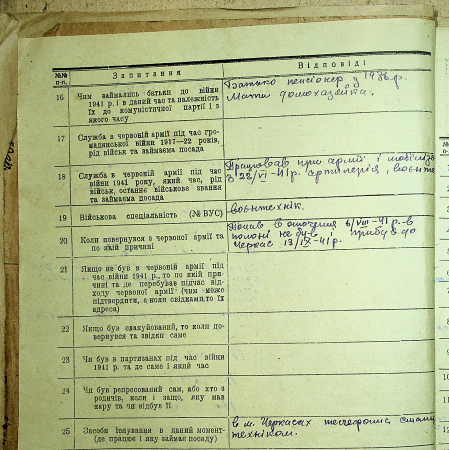 №№ п-п.
Запитання
Відповіді
16
Чим займались батьки до війни
1941 р. і в даний час та належність
їх до комуністичної партії і з
якого часу
Батько пенсіонер з 1936 р.
Мати домохазяйка.
17
Служба в червоній армії під час гро-
мадянської війни 1917—22 років,
рід військ та займаєма посада
18
Служба в червоній армії під час
війни 1941 року, який час, рід
військ, останнє військове звання
та займаєма посада
Працював при армії і мобіліз
з 22/VI-41 р. артилерія, воєнтех
19
Військова спеціальність (№ ВУС)
воєнтехнік.
20
Коли повернувся з червоної армії та
по якій причині
Попав в оточення 6/VIII-41 р. в
полоні не був і прибув до
Черкас 13/IX-41 р.
21
Якщо не був в червоній армії під
час війни 1941 р., то по якій при-
чині та де перебував підчас від-
ходу червоної армії (чим може
підтвердити, а коли свідками, то їх
адреса)
22
Якщо був евакуйований, то коли по-
вернувся та звідки саме
23
Чи був в партизанах під час війни
1941 р. та де саме і який час
24
Чи був репресований сам, або хто з
родичів, коли і защо, яку мав
кару та чи відбув її
25
Засоби існування в даний момент-
(де працює і яку займає посаду)
в м. Черкасах
техніком.